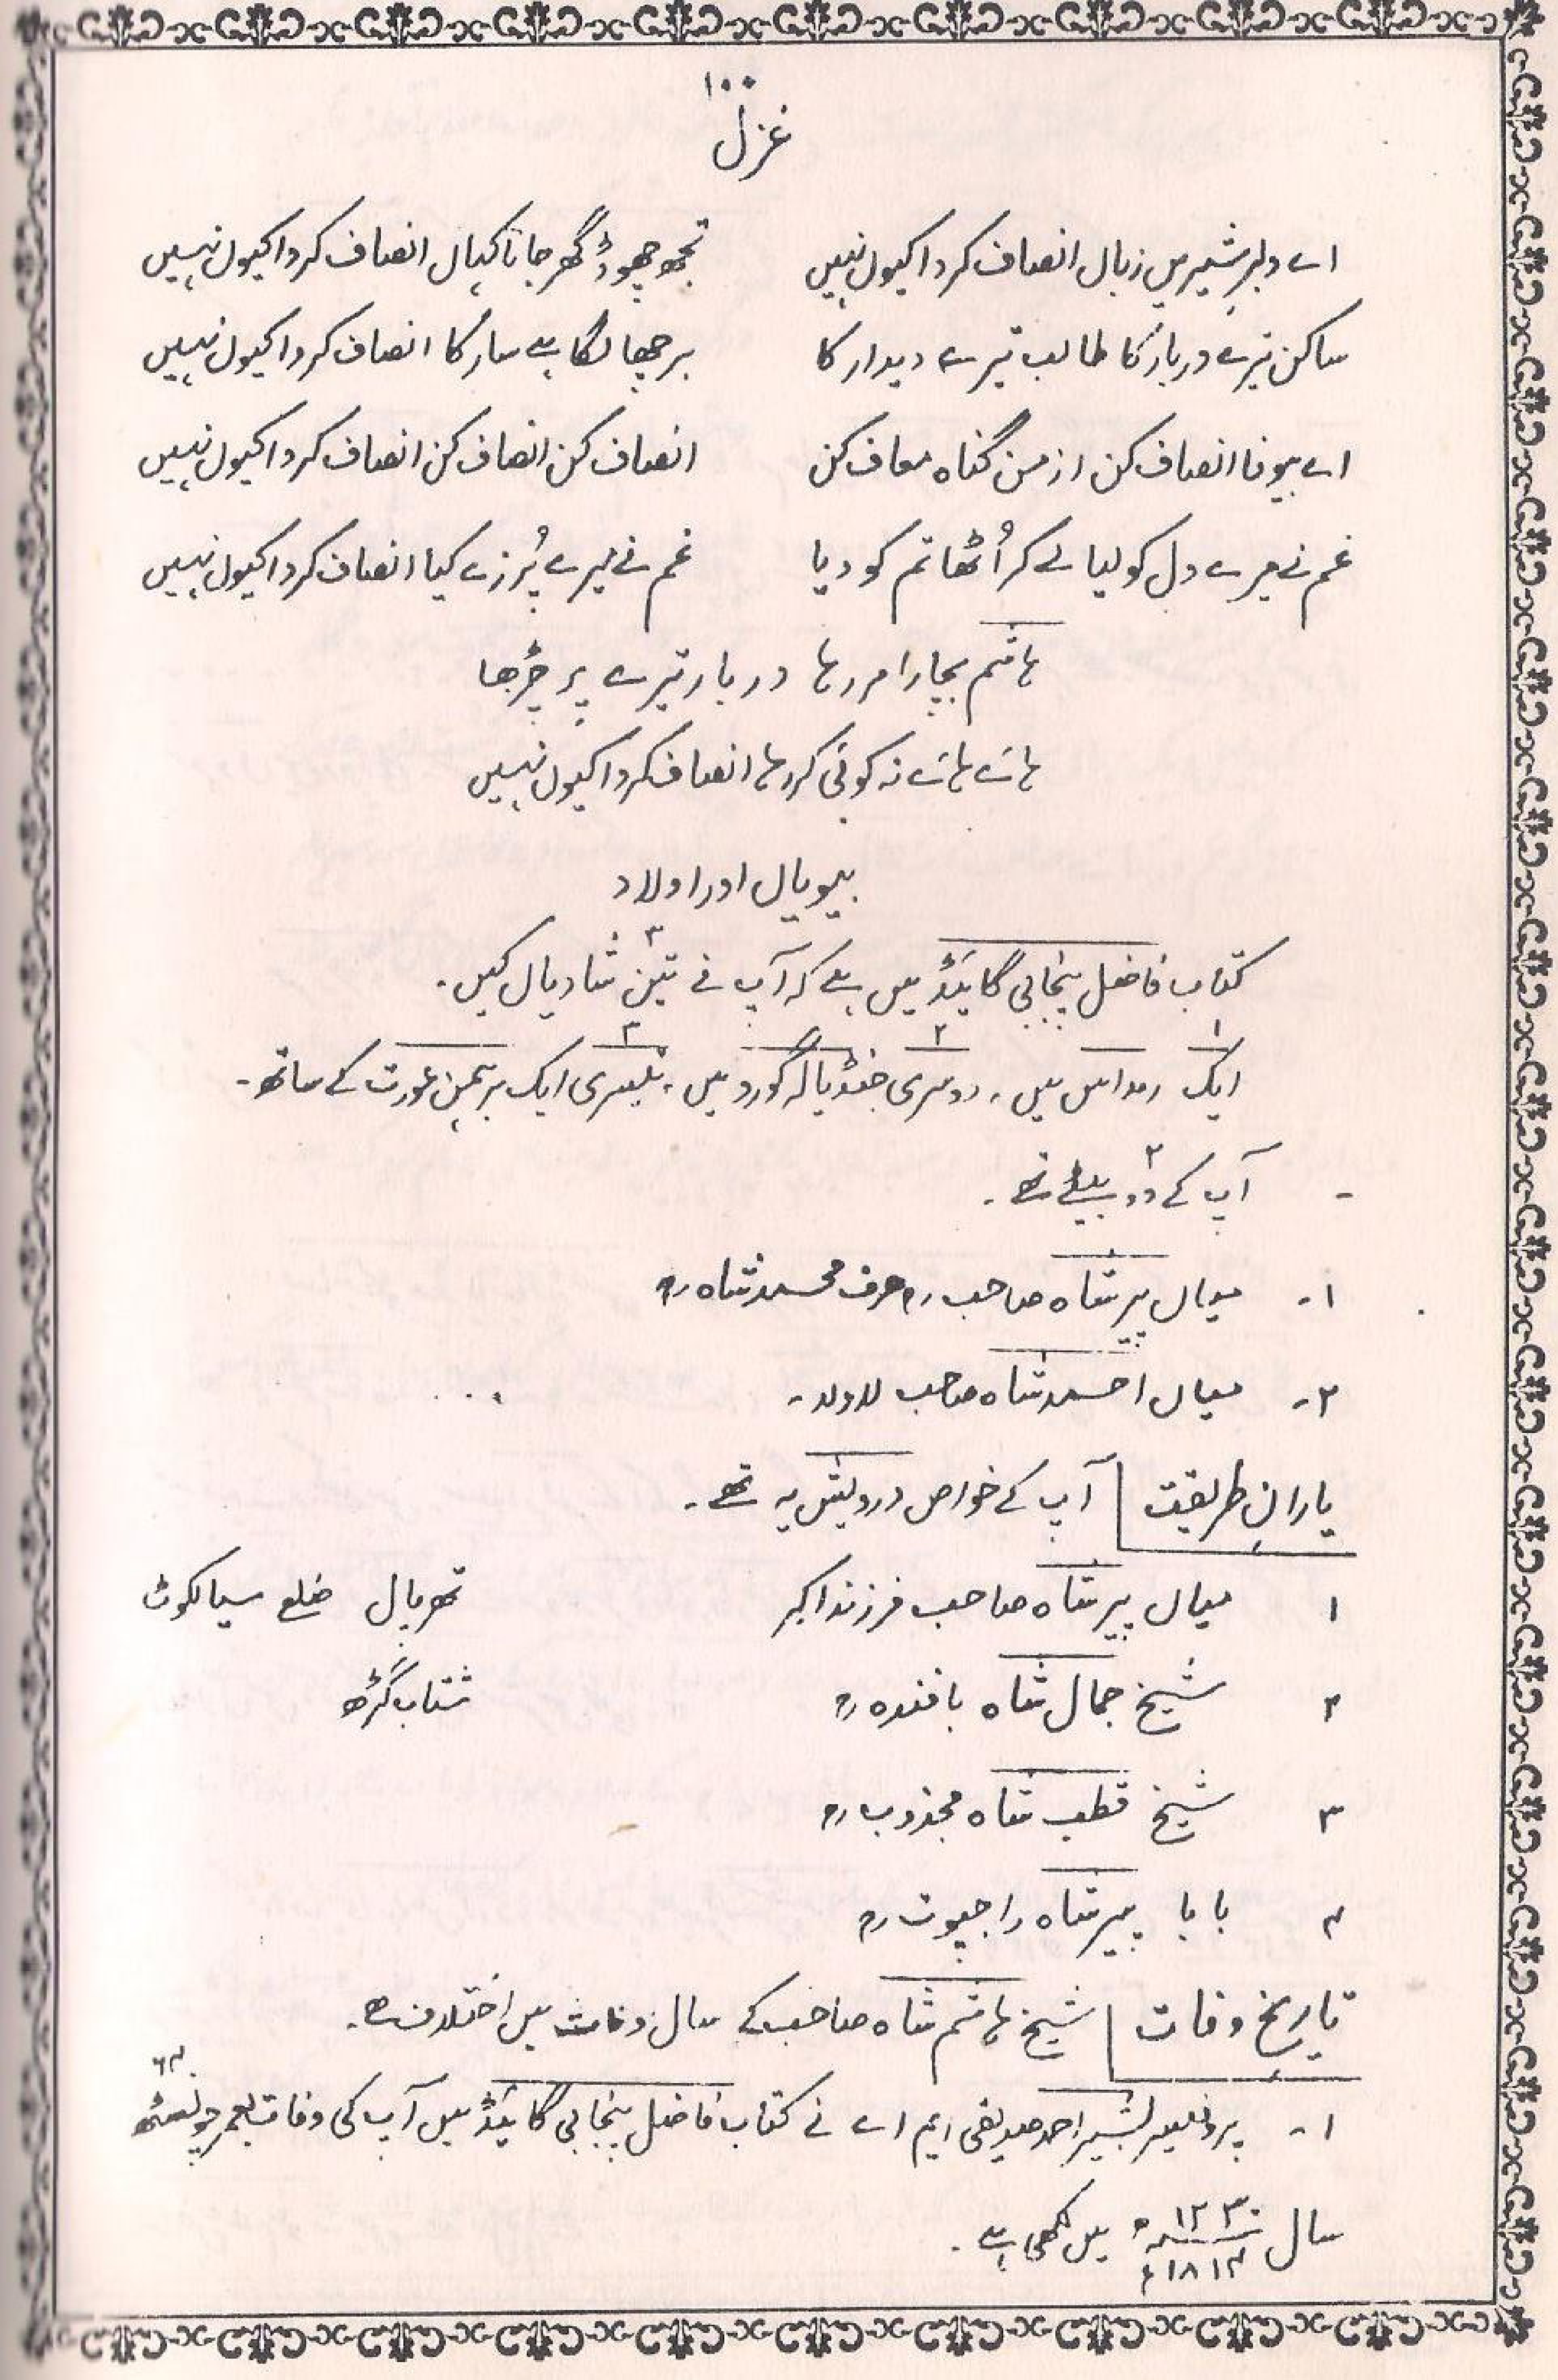 ۱۰۰
غزل
اے دلبرِ شیریں زباں انصاف کردا کیوں نہیں تجھ چھوڑ گھر جانا کہاں انصاف کردا کیوں نہیں
ساکن تیرے دربار کا طالب تیرے دیدار کا برچھا لگا ہے سار کا انصاف کردا کیوں نہیں
اے بیوفا انصاف کن از من گناہ معاف کن انصاف کن انصاف کن انصاف کردا کیوں نہیں
غم نے میرے دل کو لیا لے کر اُٹھا تم کو دیا غم نے میرے پُرزے کیا انصاف کردا کیوں نہیں
ہاشم بچارا مر رہا دربار تیرے پر چڑھا
ہائے ہائے نہ کوئی کر رہا انصاف کردا کیوں نہیں
بیویاں اور اولاد
کتاب فاضل پنجابی گائیڈ میں ہے کہ آپ نے تین ۳ شادیاں کیں۔
ایک ۱ رمداس میں، دوسری ۲ جنڈیالہ گورو میں، تیسری ۳ ایک برہمن عورت کے ساتھ۔
- آپ کے دو ۲ بیٹے تھے۔
۱۔ میاں پیر شاہ صاحب رح عرف محمد شاہ رح
۲۔ میاں احمد شاہ صاحب لاولد۔
یارانِ طریقت آپ کے خواص درویش یہ تھے۔
۱ میاں پیر شاہ صاحب فرزند اکبر تھرپال ضلع سیالکوٹ
۲ شیخ جمال شاہ بافندہ رح شتاب گڑھ
۳ شیخ قطب شاہ مجذوب رح
۴ بابا پیر شاہ راجپوت رح
تاریخِ وفات شیخ ہاشم شاہ صاحب کے سال وفات میں اختلاف ہے۔
۱۔ پروفیسر بشیر احمد صدیقی ایم اے نے کتاب فاضل پنجابی گائیڈ میں آپ کی وفات بعمر چونسٹھ ۶۴
سال ۱۲۳۰ھ ۱۸۱۴ء میں لکھی ہے۔